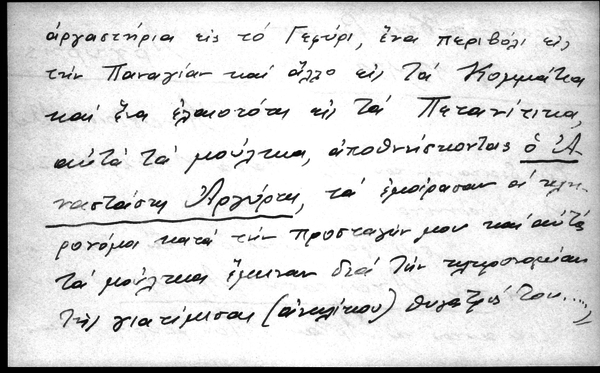 ἀργαστήρια εἰς τό Γεφύρι, ἕνα περιβόλι εἰς
τήν Παναγίαν καί ἄλλο εἰς τά Κομμάτια
καί ἕνα ἐλαιοτόπι εἰς τά Πετανίτικα,
αὐτά τά μούλκια, ἀποθνήσκοντας ὁ Ἀ-
ναστάσης Ἀργύρης, τά ἐμοίρασαν οἱ κλη-
ρονόμοι κατά τήν προσταγήν μου καί αὐτά
τά μούλκια ἔμειναν διά τήν κληρονομίαν
τῆς (ἀνηλίκου) θυγατρός του....,,